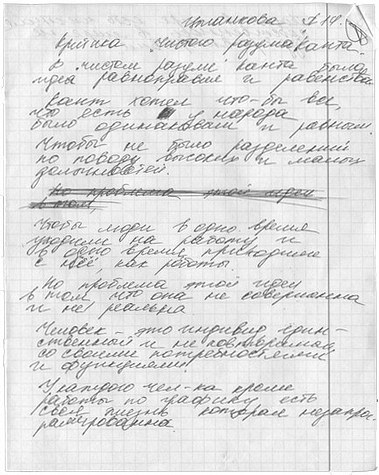 Критика чистого разума Канта.
В чистом разуме Канта была
идея равноправия и равенства
Кант хотел что-бы все,
что есть у народа
было одинаковым и равным.
Чтобы не было разделений
по поводу высоких и малых
должностей.
Но проблема этой идеи
в том,
Чтобы люди в одно время
уходили на работу и
в одно время приходили
с неё, как роботы.
Но проблема этой идеи
в том что она не совершенна
и не реальна
Человек - это индивид един-
ственный и не повторимый
со своими потребностями
и функциями.
У каждого чел-ка кроме
работы по графику есть
своя жизнь которая незапрог-
рамированна.